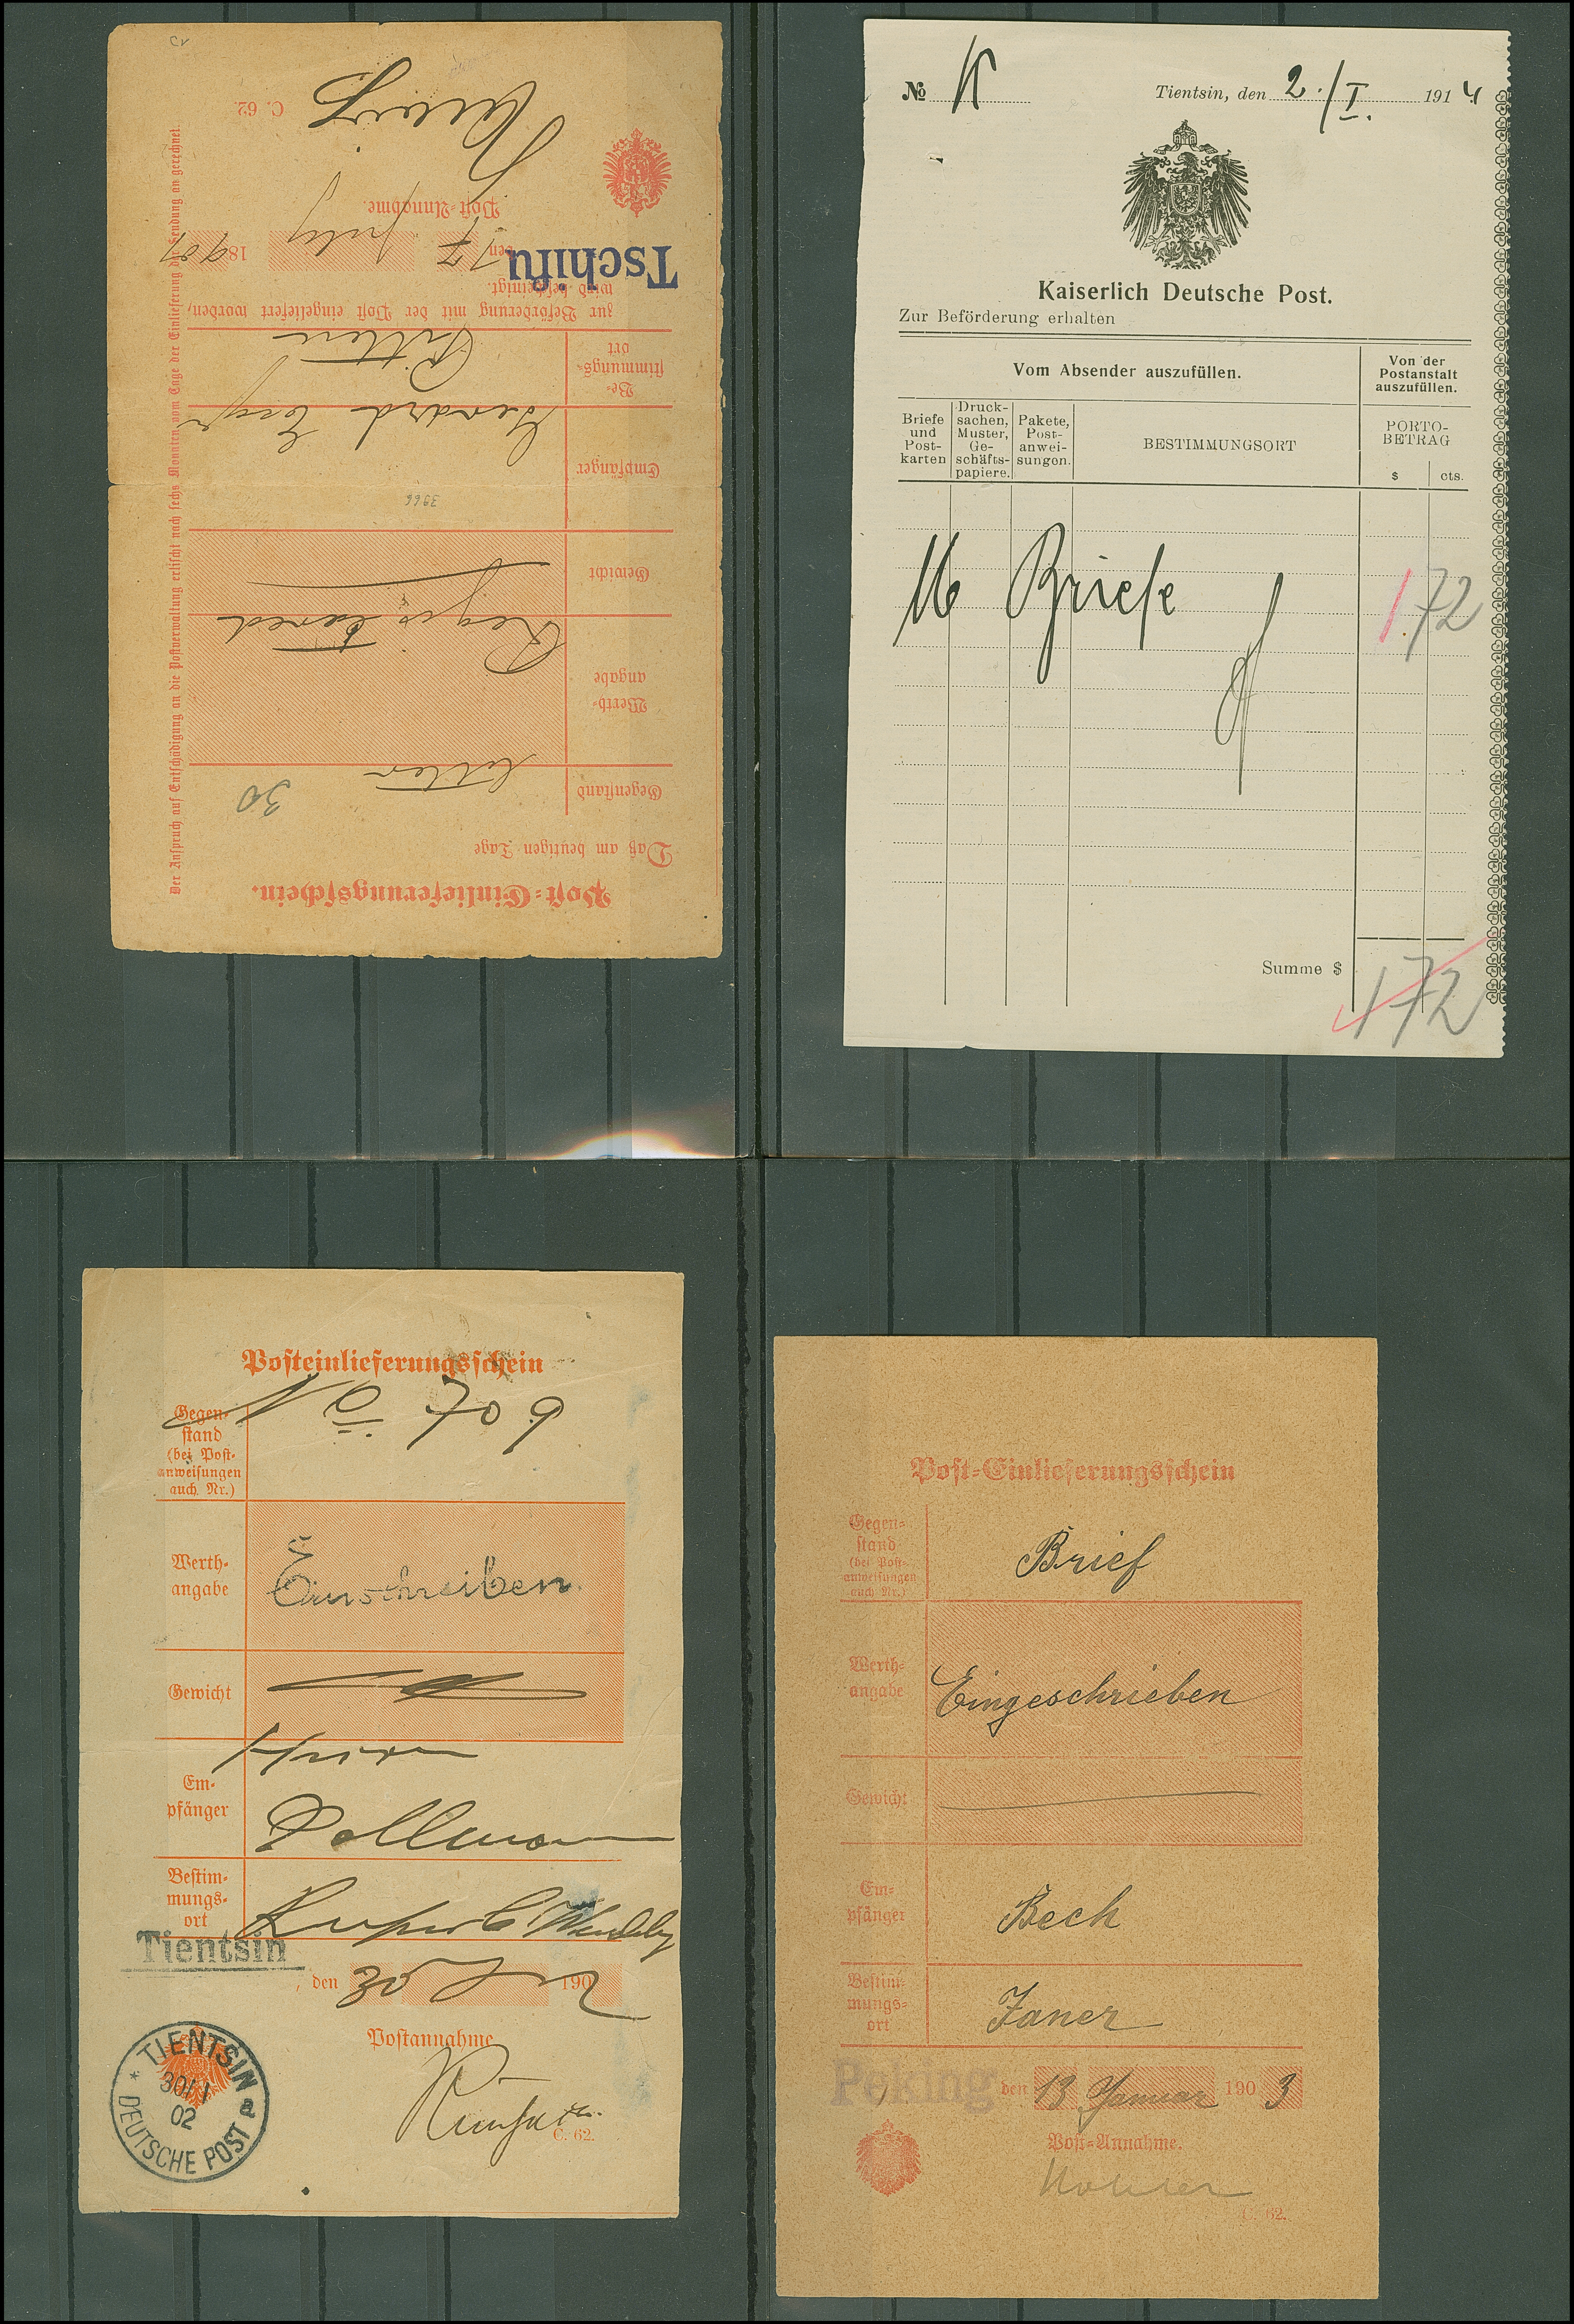 Post-Einlieferungsschein.
Daß am heutigen Tage
Gegenstand
letter
30
Werth-
angabe
Registered
Gewicht
3966
Empfänger
Be-
stimmungs-
ort
zur Beförderung mit der Post eingeliefert worden,
wird bescheinigt.
Tschifu
den 17 July 18 901
Post-Annahme.
C. 62.
Der Anspruch auf Entschädigung an die Postverwaltung erlischt nach sechs Monaten, vom Tage der Einlieferung der Sendung an gerechnet.
№
Tientsin, den 2./I. 1914
Kaiserlich Deutsche Post.
Zur Beförderung erhalten
Vom Absender auszufüllen.
Von der
Postanstalt
auszufüllen.
Briefe
und
Post-
karten
Druck-
sachen,
Muster,
Ge-
schäfts-
papiere.
Pakete,
Post-
anwei-
sungen.
BESTIMMUNGSORT
PORTO-
BETRAG
$ cts.
16 Briefe
1.72
Summe $ 172
Posteinlieferungsschein
Gegen-
stand
(bei Post-
anweisungen
auch Nr.)
709
Werth-
angabe
Einschreiben.
Gewicht
Em-
pfänger
Bestim-
mungs-
ort
Tientsin
, den 30 1902
Postannahme
TIENTSIN
30/1
02
a
DEUTSCHE POST
C. 62.
Post-Einlieferungsschein
Gegen-
stand
(bei Post-
anweisungen
auch Nr.)
Brief
Werth-
angabe
Eingeschrieben
Gewicht
Em-
pfänger
Beck
Bestim-
mungs-
ort
Janer
Peking den 13 Januar 1903
Post-Annahme.
C. 62.